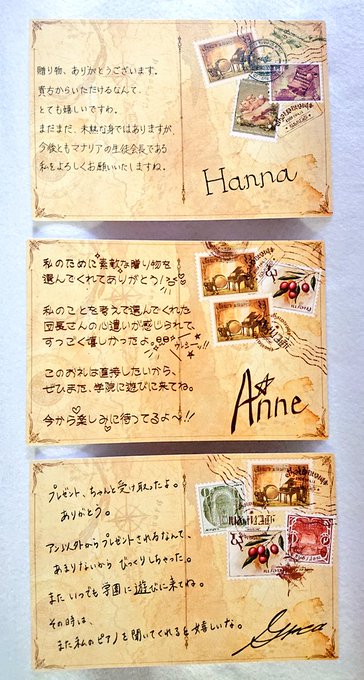 贈り物、ありがとうございます。
貴方からいただけるなんて、
とても嬉しいですわ。
まだまだ、未熟な身ではありますが、
今後ともマナリアの生徒会長である
私をよろしくお願いいたしますね。
Hanna
私のために素敵な贈り物を
選んでくれてありがとう!
私のことを考えて選んでくれた
団長さんの心遣いが感じられて、
すっごく嬉しかったよ。
このお礼は直接したいから、
ぜひまた、学院に遊びに来てね。
今から楽しみに待ってるよ〜!!
Anne
プレゼント、ちゃんと受け取ったよ。
ありがとう。
アン以外からプレゼントされるなんて、
あまりないからびっくりしちゃった。
またいつでも学園に遊びに来てね。
その時は、
また私のピアノを聞いてくれると嬉しいな。